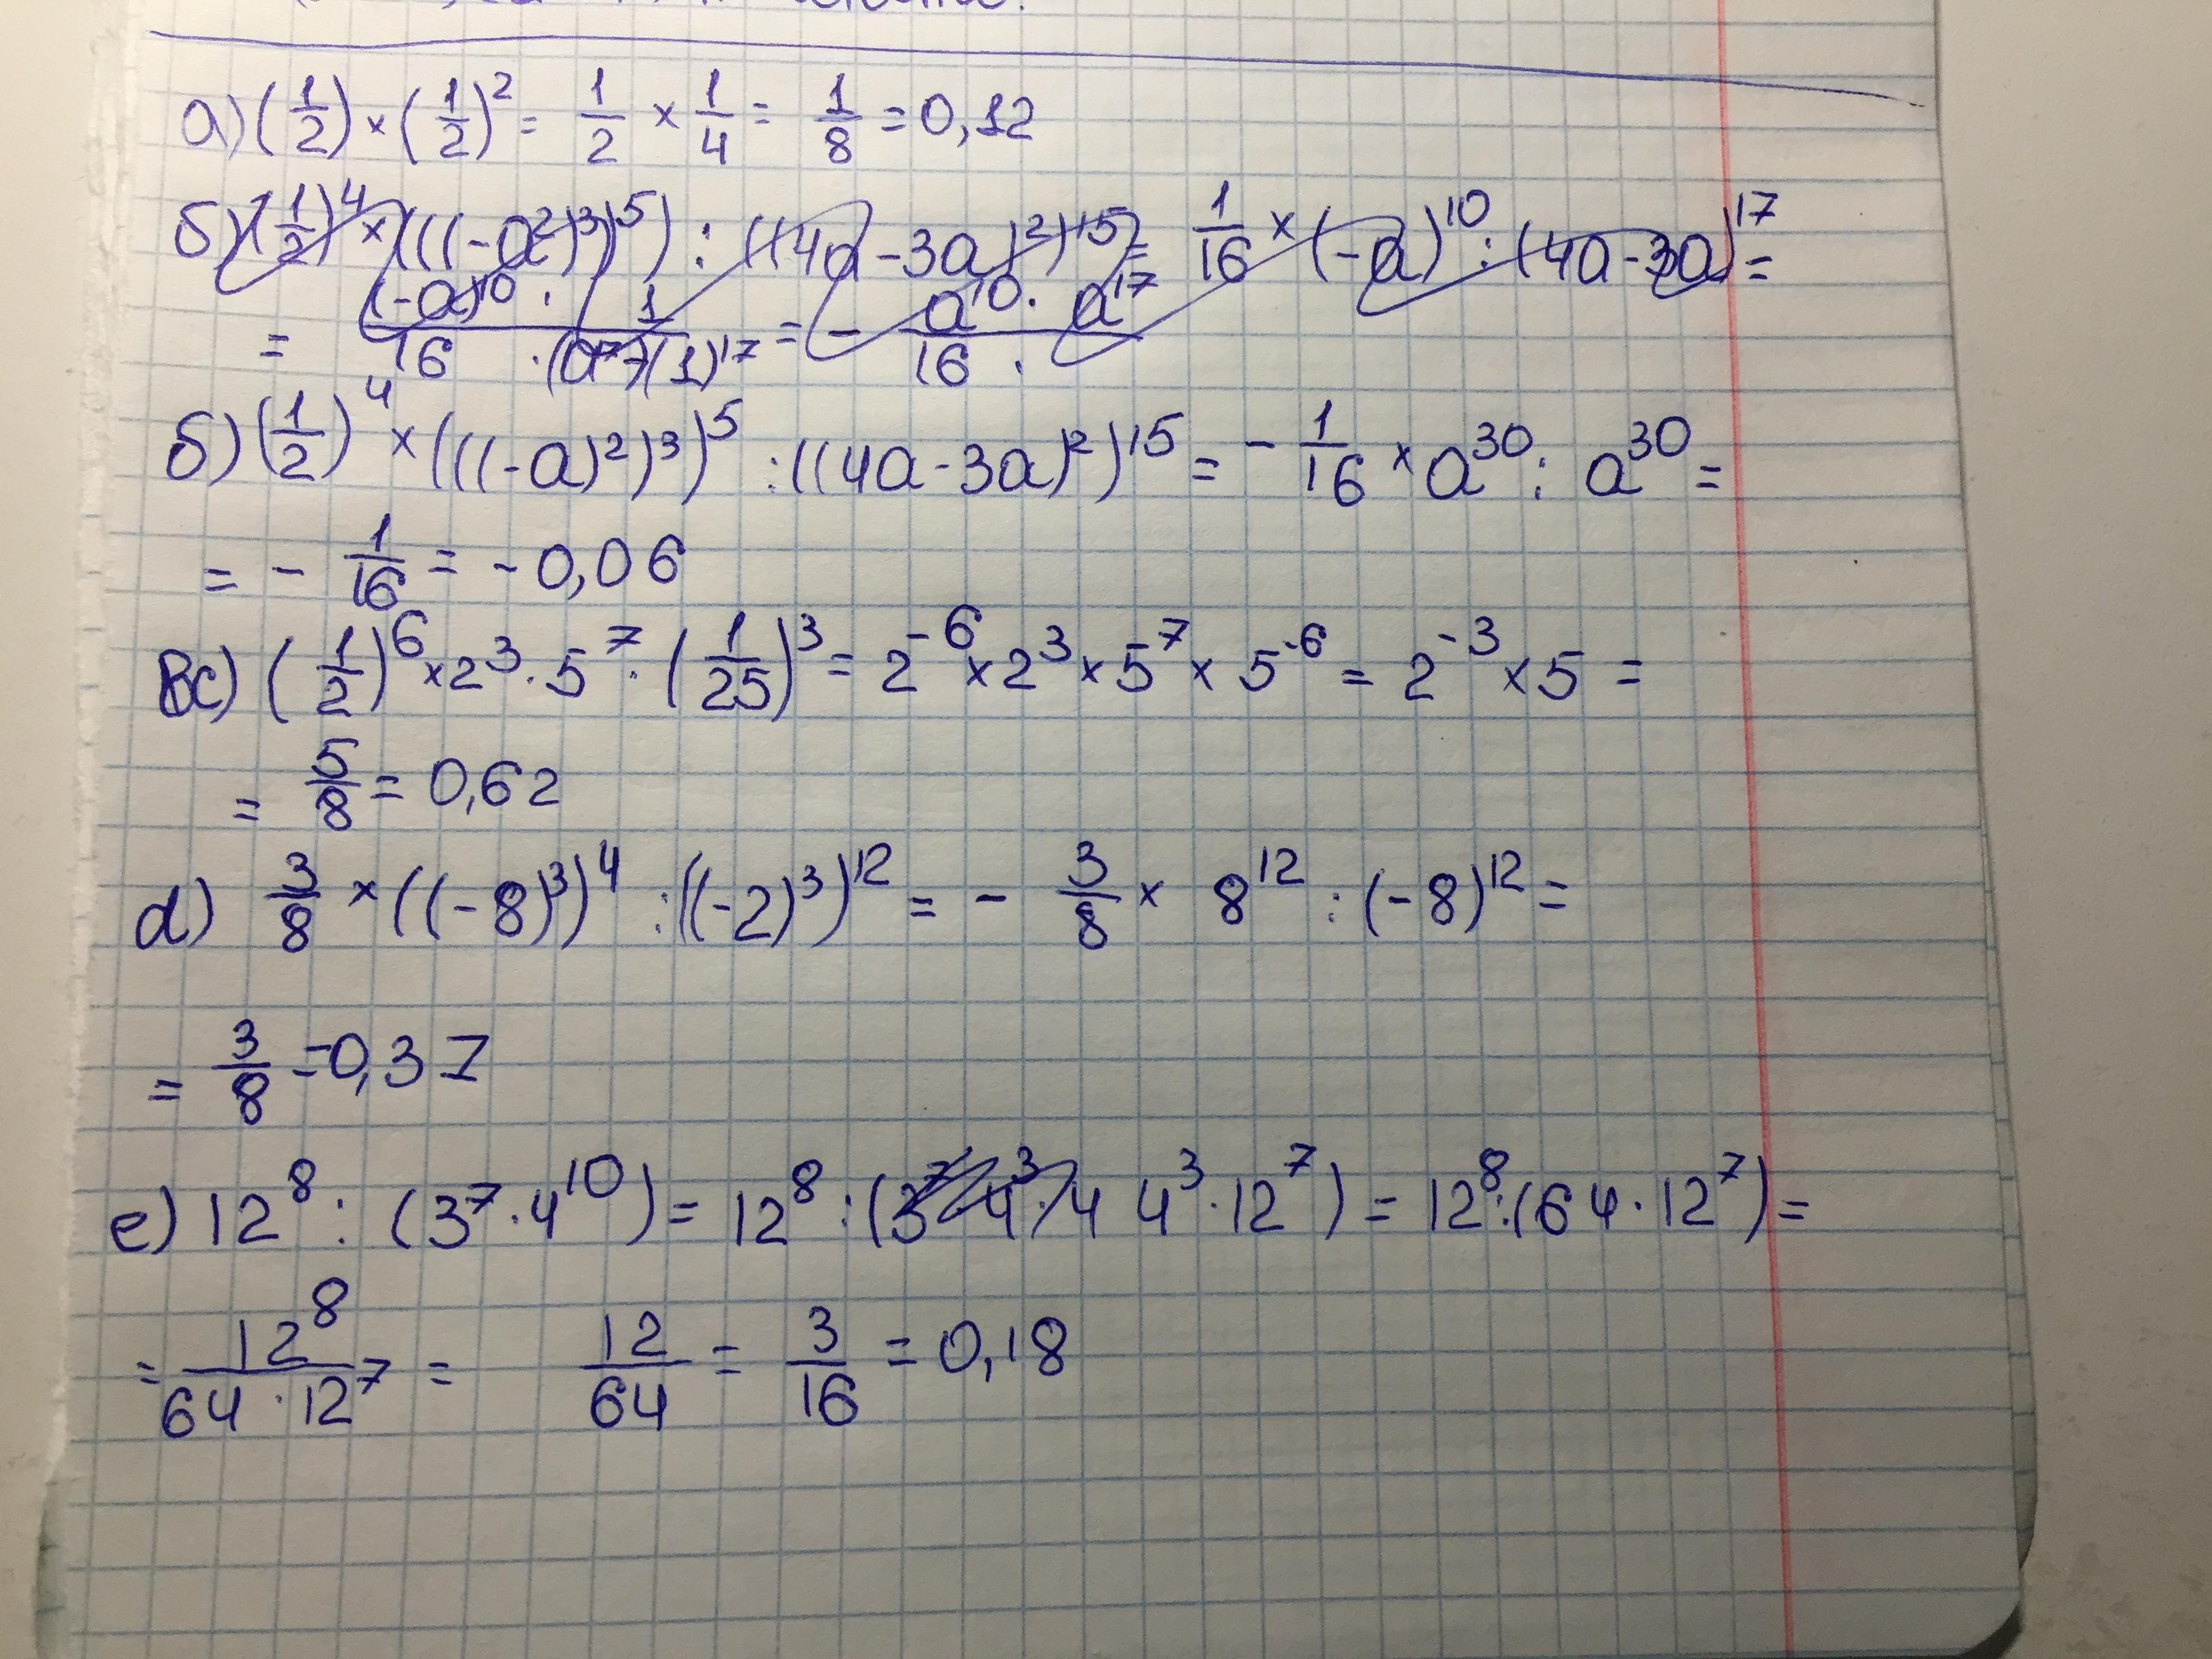 а) (1/2) × (1/2)² = 1/2 × 1/4 = 1/8 = 0,12
б) (1/2)⁴ × (((-a²)³)⁵) : ((4a - 3a)²)¹⁵ = 1/16 × (-a)¹⁰ : (4a - 3a)¹⁷ =
= (-a)¹⁰ · 1 / 16 · (a¹⁷)(1)¹⁷ = - a¹⁰ · a¹⁷ / 16 ·
б) (1/2)⁴ × (((-a)²)³)⁵ : ((4a - 3a)²)¹⁵ = - 1/16 × a³⁰ : a³⁰ =
= - 1/16 = - 0,06
с) (1/2)⁶ × 2³ · 5⁷ · (1/25)³ = 2⁻⁶ × 2³ × 5⁷ × 5⁻⁶ = 2⁻³ × 5 =
= 5/8 = 0,62
d) 3/8 × ((-8)³)⁴ : ((-2)³)¹² = - 3/8 × 8¹² : (-8)¹² =
= 3/8 = 0,37
e) 12⁸ : (3⁷ · 4¹⁰) = 12⁸ : (4³ · 12⁷) = 12⁸ : (64 · 12⁷) =
= 12⁸ / 64 · 12⁷ = 12/64 = 3/16 = 0,18